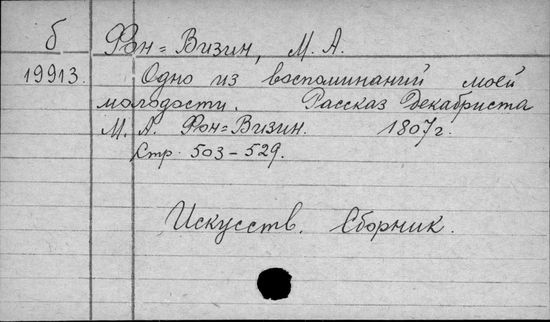 б
Фон=Визин, М. А.
19913.
Одно из воспоминаний моей
молодости. Рассказ Декабриста
М. А. Фон=Визин. 1807 г.
Стр. 503-529.
Искусств. Сборник.